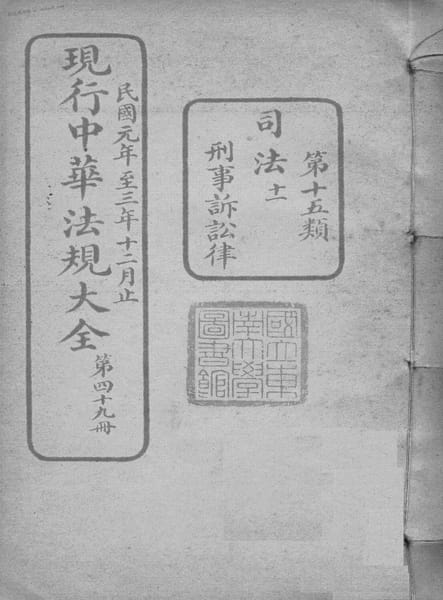 第十五類
司法十一
刑事訴訟律
國立東
南大學
圖書館
民國元年至三年十二月止
現行中華法規大全
第四十九冊